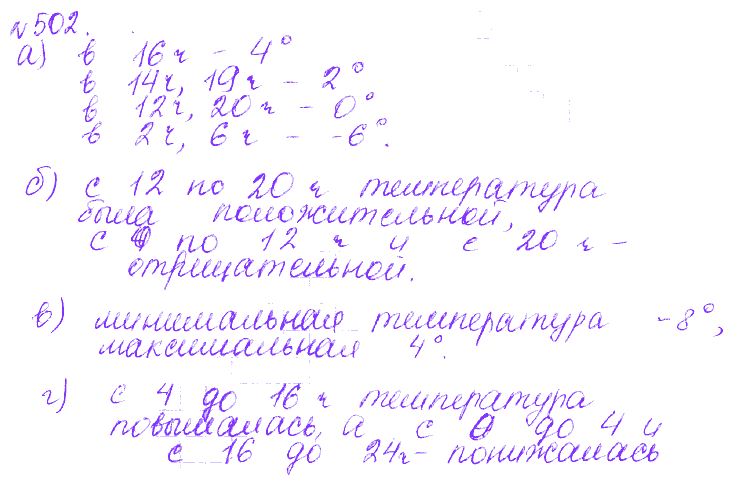 №502.
а) в 16 ч - 4°
в 14ч, 19ч - 2°
в 12ч, 20ч - 0°
в 2ч, 6ч - -6°.
б) с 12 по 20 ч температура
была положительной,
с 0 по 12 ч и с 20 ч -
отрицательной.
в) минимальная температура -8°,
максимальная 4°.
г) с 4 до 16 ч температура
повышалась, а с 0 до 4 и
с 16 до 24ч - понижалась